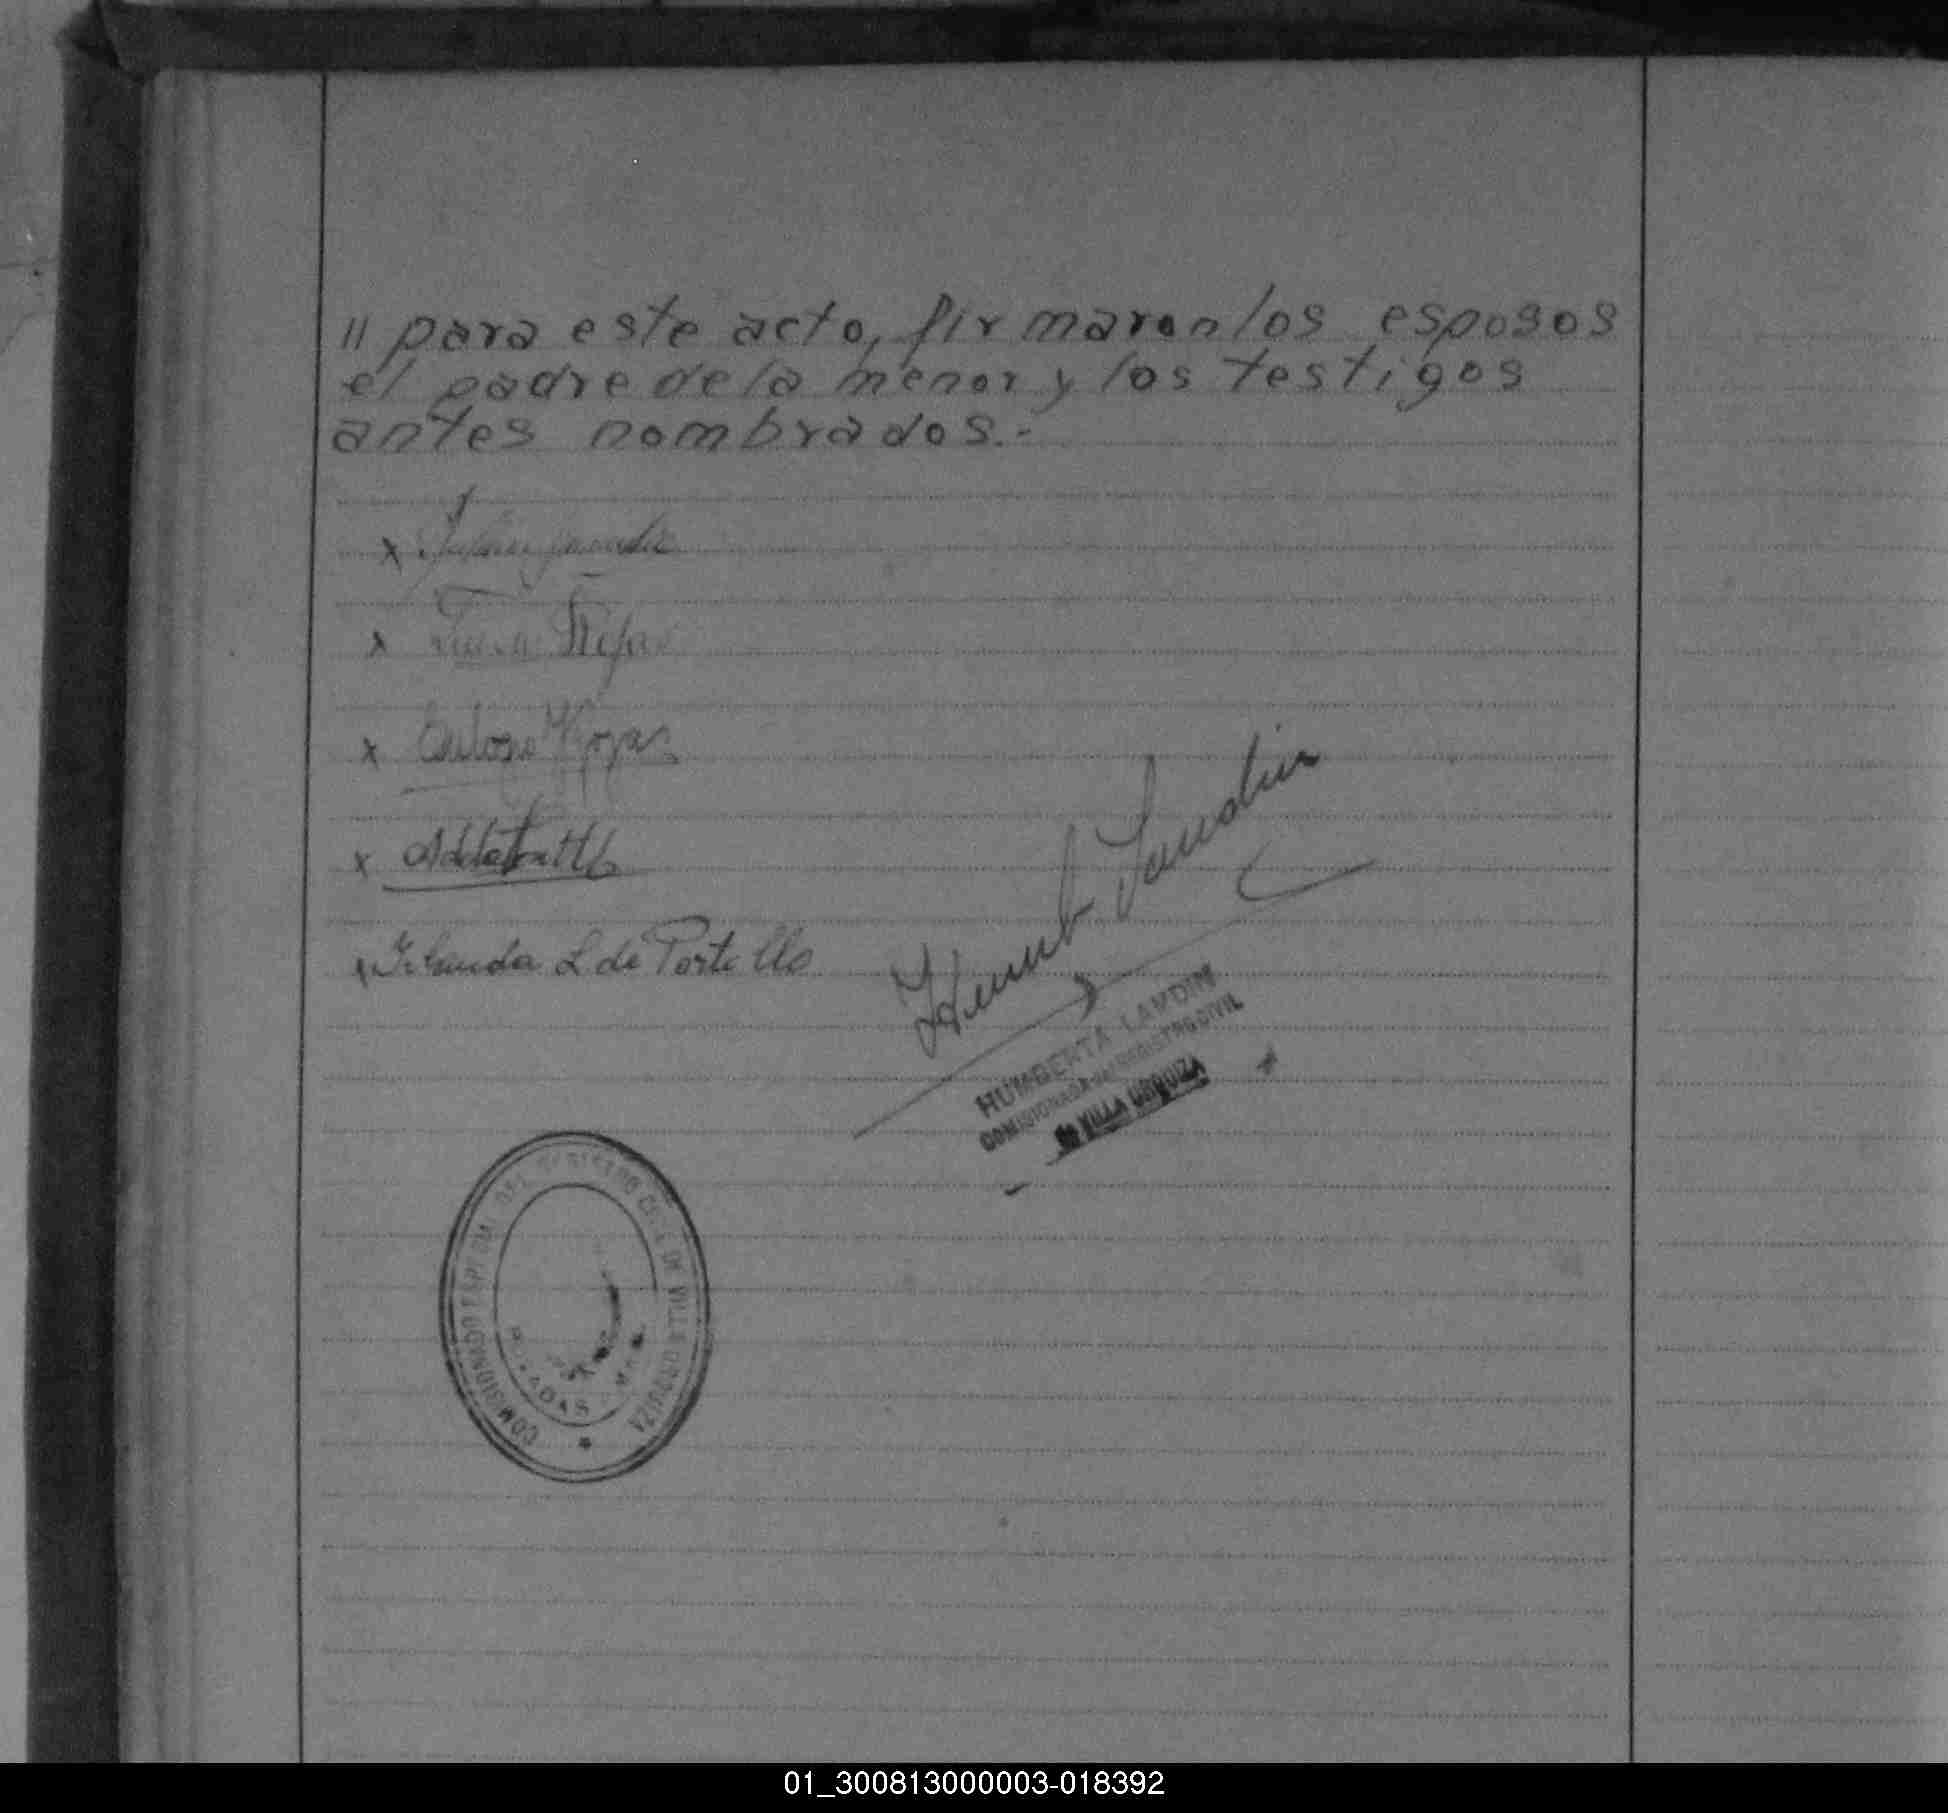 // para este acto, firmaron los esposos
el padre de la menor y los testigos
antes nombrados.-
x
x Rojas
x Eulogio Rojas
x
x L de Portillo
Humb Landin
HUMBERTA LANDIN
COMISIONADA del REGISTRO CIVIL
de VILLA URQUIZA
COMISIONADO ESPECIAL DEL REGISTRO CIVIL DE VILLA URQUIZA
POSADAS
01_300813000003-018392